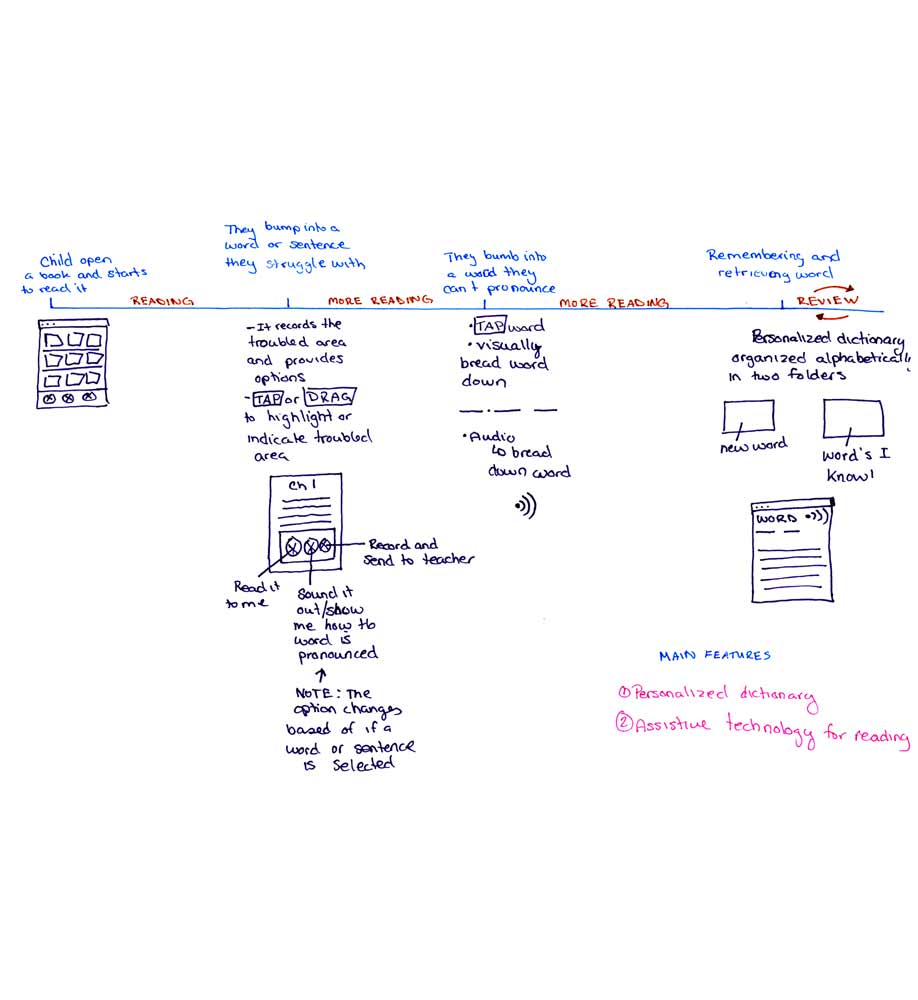 Child open
a book and starts
to read it
They bump into a
word or sentence
they struggle with
They bumb into
a word they
can't pronounce
Remembering and
retrieving word
READING
MORE READING
MORE READING
REVIEW
- It records the
troubled area
and provides
options
- TAP or DRAG
to highlight or
indicate troubled
area
Ch 1
Record and
send to teacher
Read it
to me
Sound it
out/show
me how tb
word is
pronounced
NOTE: The
option changes
based of if a
word or sentence
is selected
• TAP word
• visually
bread word
down
• Audio
↳ bread
down word
Personalized dictionary
organized alphabetically
in two folders
new word
word's I
know!
WORD
MAIN FEATURES
① Personalized dictionary
② Assistive technology for reading